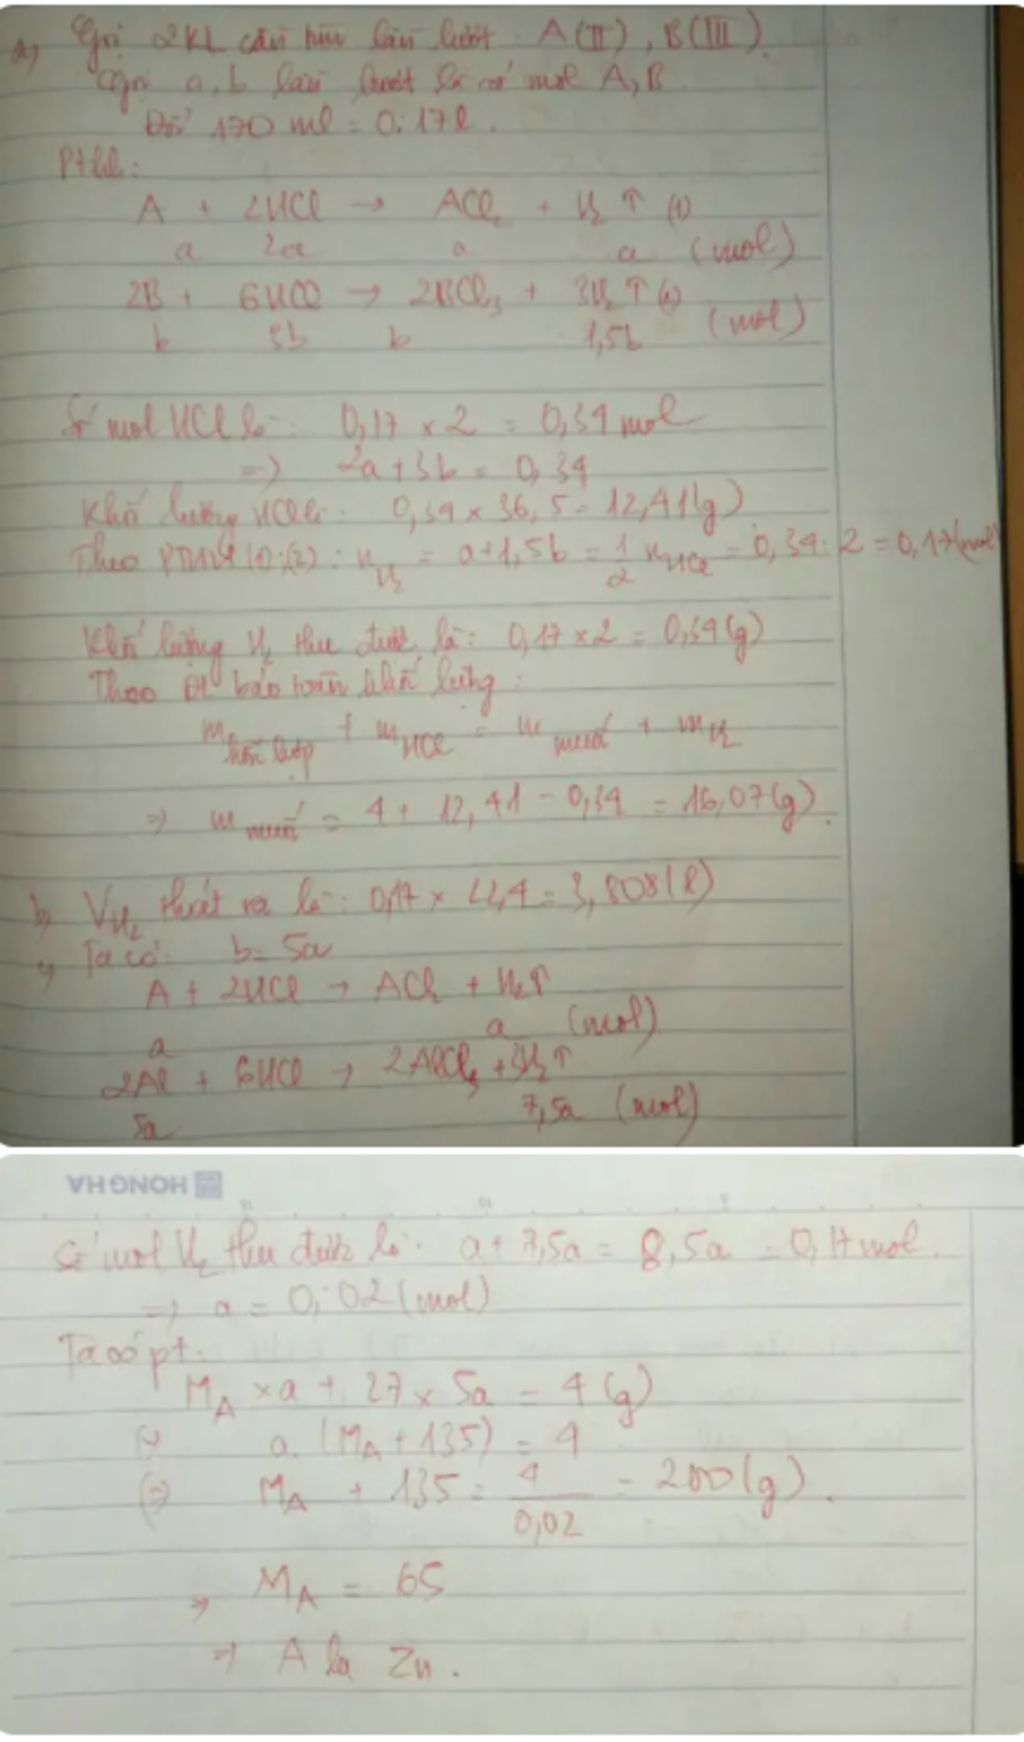 a) Gọi 2KL cần tìm lần lượt A(II), B(III).
Gọi a, b lần lượt là số mol A, B
Đổi 170 ml = 0,17 l.
Pthh:
A + 2HCl → ACl₂ + H₂ ↑ (1)
a 2a a a (mol)
2B + 6HCl → 2BCl₃ + 3H₂ ↑ (2)
b 3b b 1,5b (mol)
Số mol HCl là: 0,17 × 2 = 0,34 mol
=> 2a + 3b = 0,34
Khối lượng HCl là: 0,34 × 36,5 = 12,41 (g)
Theo PTHH (1); (2): n H₂ = a + 1,5b = 1/2 n HCl = 0,34 : 2 = 0,17 (mol)
Khối lượng H₂ thu được là: 0,17 × 2 = 0,34 (g)
Theo ĐL bảo toàn khối lượng:
m hỗn hợp + m HCl = m muối + m H₂
=> m muối = 4 + 12,41 - 0,34 = 16,07 (g).
b, V H₂ thoát ra là: 0,17 × 22,4 = 3,808 (l)
Ta có: b = 5a
A + 2HCl → ACl₂ + H₂↑
a a (mol)
2Al + 6HCl → 2AlCl₃ + 3H₂↑
5a 7,5a (mol)
HONG HA
Số mol H₂ thu được là: a + 7,5a = 8,5a = 0,17 mol.
=> a = 0,02 (mol)
Ta có pt:
M_A × a + 27 × 5a = 4 (g)
a. (M_A + 135) = 4
(=) M_A + 135 = 4/0,02 = 200 (g).
=> M_A = 65
=> A là Zn.